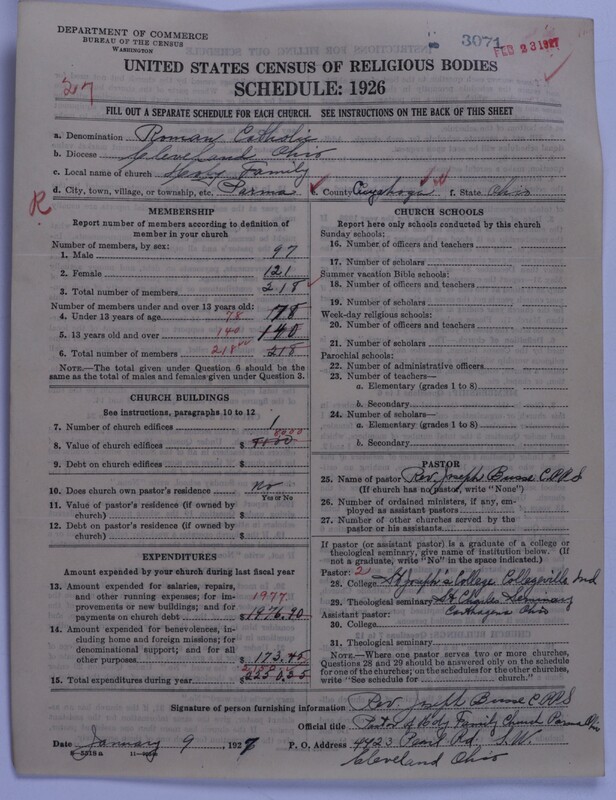 DEPARTMENT OF COMMERCE
BUREAU OF THE CENSUS
WASHINGTON
3071
FEB 23 1927
UNITED STATES CENSUS OF RELIGIOUS BODIES
SCHEDULE: 1926
27
FILL OUT A SEPARATE SCHEDULE FOR EACH CHURCH. SEE INSTRUCTIONS ON THE BACK OF THIS SHEET
a. Denomination Roman Catholic
b. Diocese Cleveland Ohio
c. Local name of church Holy Family
d. City, town, village, or township, etc. Parma e. County Cuyahoga f. State Ohio
R
MEMBERSHIP
Report number of members according to definition of member in your church
Number of members, by sex:
1. Male 97
2. Female 121
3. Total number of members 218
Number of members under and over 13 years old:
4. Under 13 years of age 78 78
5. 13 years old and over 140 140
6. Total number of members 218 218
NOTE.—The total given under Question 6 should be the same as the total of males and females given under Question 3.
CHURCH BUILDINGS
See instructions, paragraphs 10 to 12
7. Number of church edifices 1
8. Value of church edifices $
9. Debt on church edifices $
10. Does church own pastor's residence No
Yes or No
11. Value of pastor's residence (if owned by church) $
12. Debt on pastor's residence (if owned by church) $
EXPENDITURES
Amount expended by your church during last fiscal year
13. Amount expended for salaries, repairs, and other running expenses; for improvements or new buildings; and for payments on church debt 1977 $1976.90
14. Amount expended for benevolences, including home and foreign missions; for denominational support; and for all other purposes 173.45
15. Total expenditures during year $
CHURCH SCHOOLS
Report here only schools conducted by this church
Sunday schools:
16. Number of officers and teachers
17. Number of scholars
Summer vacation Bible schools:
18. Number of officers and teachers
19. Number of scholars
Week-day religious schools:
20. Number of officers and teachers
21. Number of scholars
Parochial schools:
22. Number of administrative officers
23. Number of teachers—
a. Elementary (grades 1 to 8)
b. Secondary
24. Number of scholars—
a. Elementary (grades 1 to 8)
b. Secondary
PASTOR
25. Name of pastor Rev. Joseph Busse C.PP.S
(If church has no pastor, write "None")
26. Number of ordained ministers, if any, employed as assistant pastors
27. Number of other churches served by the pastor or his assistants
If pastor (or assistant pastor) is a graduate of a college or theological seminary, give name of institution below. (If not a graduate, write "No" in the space indicated.)
Pastor: 2
28. College St Joseph's College Collegeville Ind
29. Theological seminary St Charles Seminary
Carthagena Ohio
Assistant pastor:
30. College
31. Theological seminary
NOTE.—Where one pastor serves two or more churches, Questions 28 and 29 should be answered only on the schedule for one of the churches; on the schedules for the other churches, write "See schedule for church."
Signature of person furnishing information Rev. Joseph Busse C.PP.S
Official title Pastor of Holy Family Church Parma Ohio
Date January 9, 1927 P. O. Address 4423 Pearl Rd. S.W.
Cleveland Ohio
8—5518 a